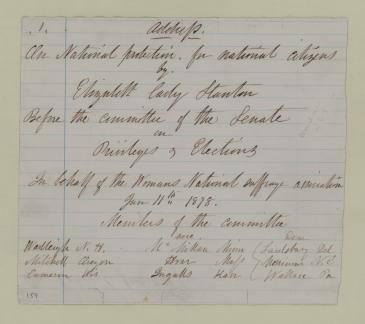 1. Address.
On National protection. for national citizens
by.
Elizabeth Cady Stanton
Before the committee of the Senate
on
Privileges & Elections
In behalf of the Womans National suffrage association
Jan 11th 1878.
Members of the committee
are. Dem
Wadleigh N. H. McMillan Minn Saulsbury Del
Mitchell Oregon Hoar Mass Merrimon N. C
Cameron Wis. Ingalls Kan Wallace Pa